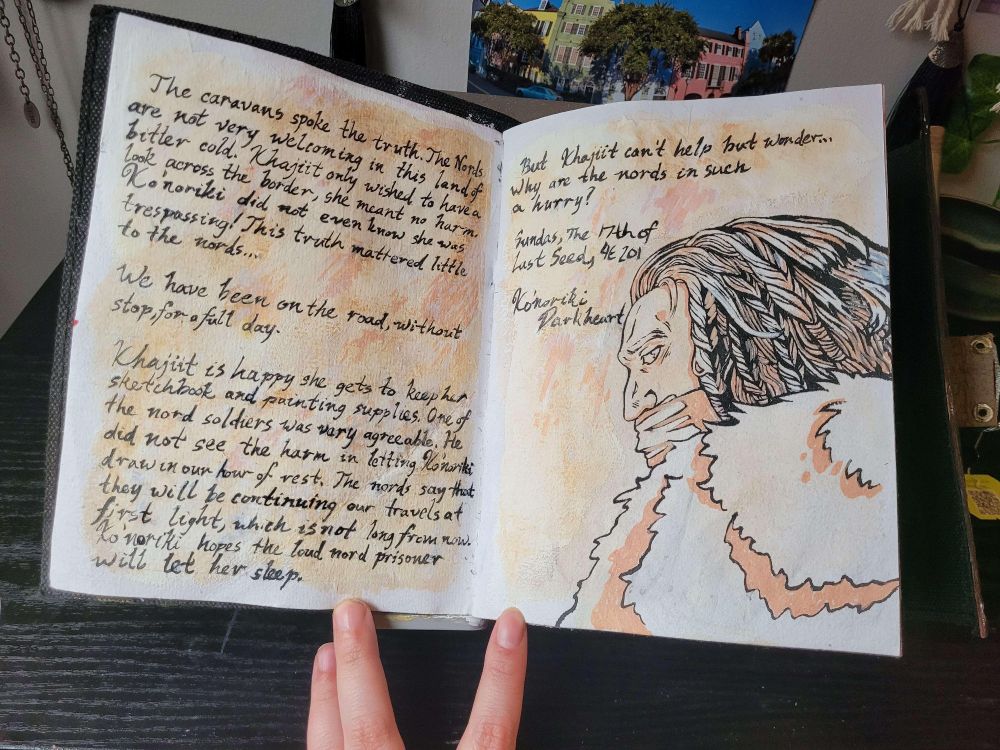 The caravans spoke the truth. The Nords
are not very welcoming in this land of
bitter cold. Khajiit only wished to have a
look across the border, she meant no harm.
Ko'noriki did not even know she was
trespassing! This truth mattered little
to the nords...
We have been on the road, without
stop, for a full day.
Khajiit is happy she gets to keep her
sketchbook and painting supplies. One of
the nord soldiers was very agreeable. He
did not see the harm in letting Ko'noriki
draw in our hour of rest. The nords say that
they will be continuing our travels at
first light, which is not long from now.
Ko'noriki hopes the loud nord prisoner
will let her sleep.
But Khajiit can't help but wonder...
why are the nords in such
a hurry?
Sundas, The 17th of
Last Seed, 4E 201
Ko'noriki
Darkheart